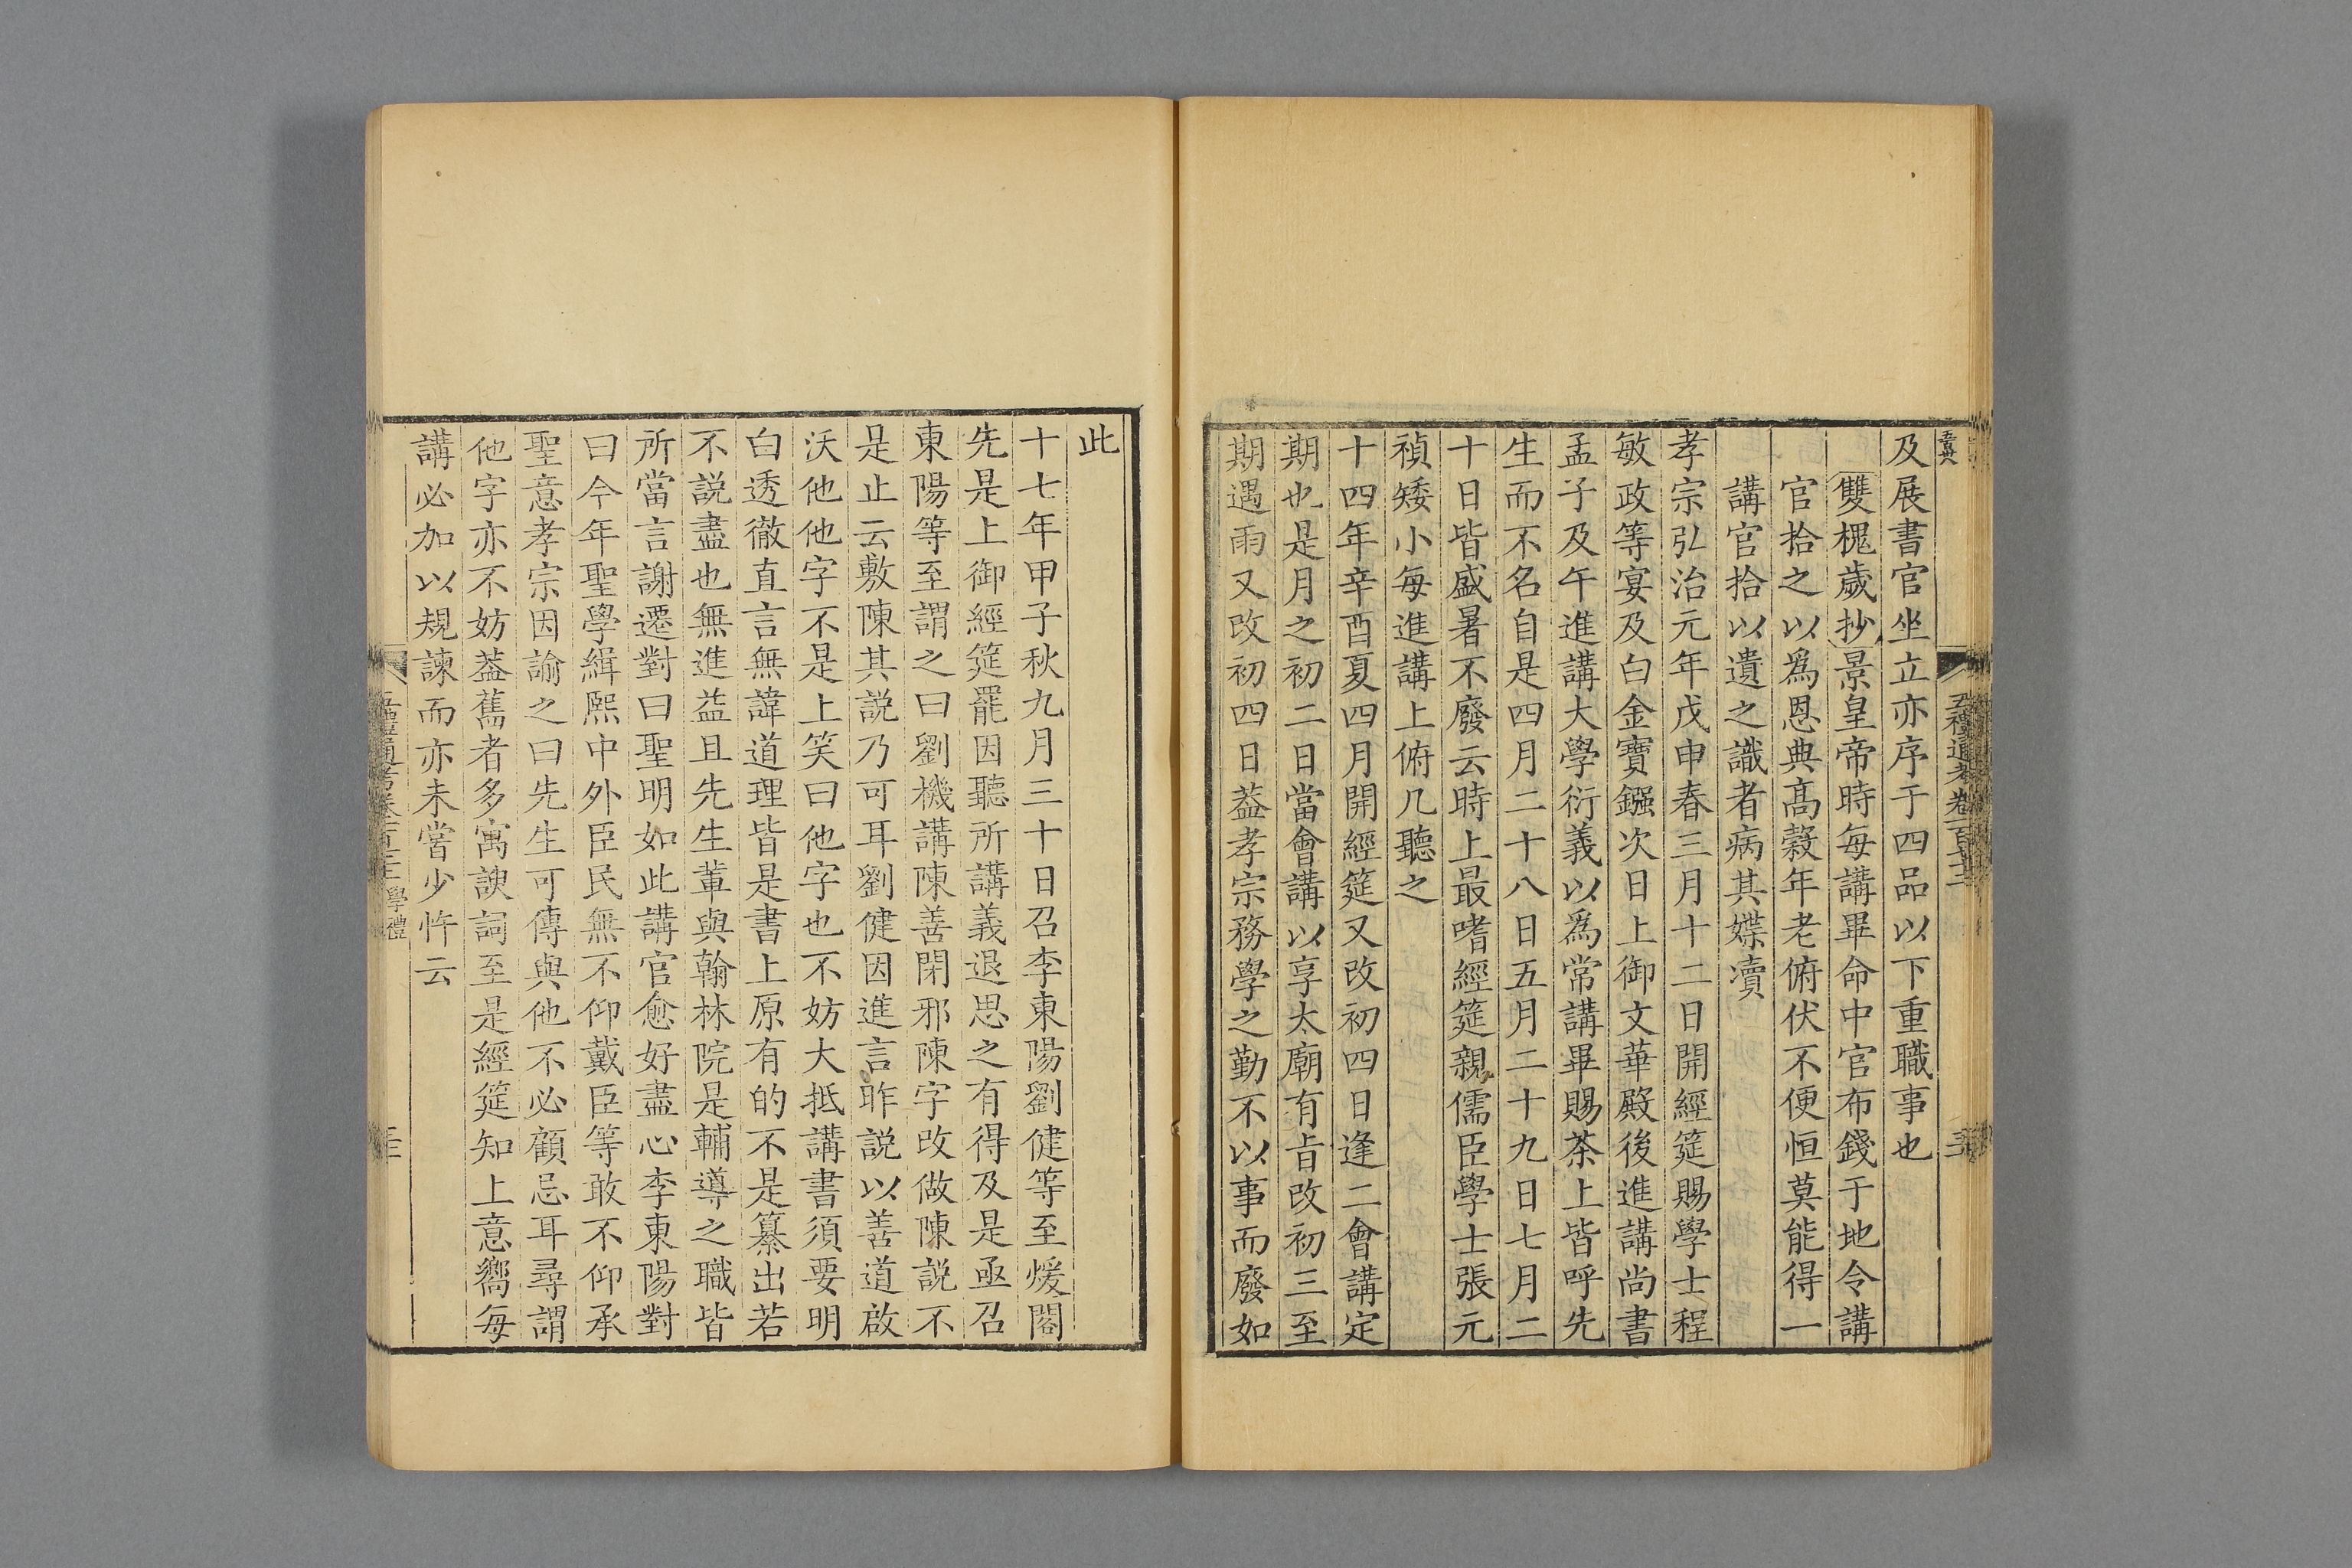 及展書官坐立亦序于四品以下重職事也
雙槐歲抄景皇帝時每講畢命中官布錢于地令講
官拾之以爲恩典髙穀年老俯伏不便恒莫能得一
講官拾以遺之識者病其媟瀆
孝宗弘治元年戊申春三月十二日開經筵賜學士程
敏政等宴及白金寶鏹次日上御文華殿後進講尚書
孟子及午進講大學衍義以爲常講畢賜茶上皆呼先
生而不名自是四月二十八日五月二十九日七月二
十日皆盛暑不廢云時上最嗜經筵親儒臣學士張元
禎矮小每進講上俯几聽之
十四年辛酉夏四月開經筵又改初四日逢二會講定
期也是月之初二日當會講以享太廟有旨改初三至
期遇雨又改初四日葢孝宗務學之勤不以事而廢如
此
十七年甲子秋九月三十日召李東陽劉健等至煖閣
先是上御經筵罷因聽所講義退思之有得及是亟召
東陽等至謂之曰劉機講陳善閉邪陳字改做陳説不
是止云敷陳其説乃可耳劉健因進言昨説以善道啟
沃他他字不是上笑曰他字也不妨大抵講書須要明
白透徹直言無諱道理皆是書上原有的不是纂出若
不説盡也無進益且先生軰與翰林院是輔導之職皆
所當言謝遷對曰聖明如此講官愈好盡心李東陽對
曰今年聖學緝熙中外臣民無不仰戴臣等敢不仰承
聖意孝宗因諭之曰先生可傳與他不必顧忌耳尋謂
他字亦不妨葢舊者多寓諛詞至是經筵知上意嚮每
講必加以規諫而亦未嘗少忤云
學禮